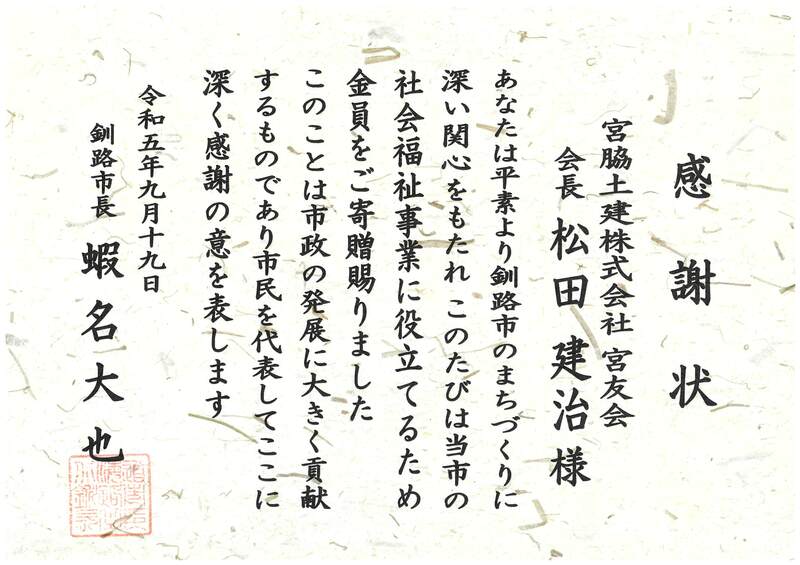 感謝状
宮脇土建株式会社 宮友会
会長 松田 建治 様
あなたは平素より釧路市のまちづくりに
深い関心をもたれ このたびは当市の
社会福祉事業に役立てるため
金員をご寄贈賜りました
このことは市政の発展に大きく貢献
するものであり市民を代表してここに
深く感謝の意を表します
令和五年九月十九日
釧路市長 蝦名大也